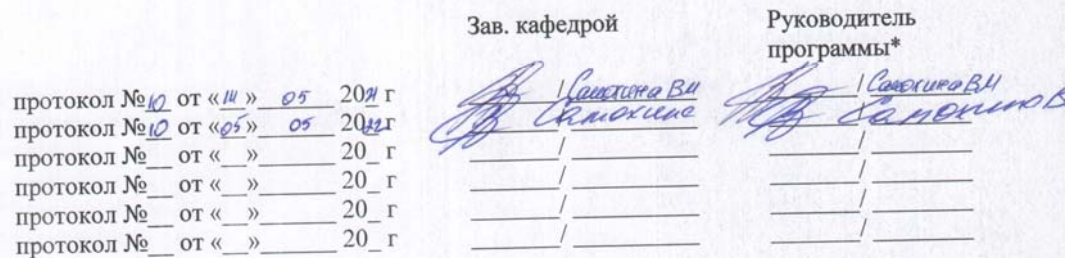 Зав. кафедрой
Руководитель
программы*
протокол № 10 от «14» 05 2021 г / Самохина В.И / Самохина В.И
протокол № 10 от «05» 05 2022 г / Самохина / Самохина
протокол №__ от «__»______ 20_ г ______/__________ ______/__________
протокол №__ от «__»______ 20_ г ______/__________ ______/__________
протокол №__ от «__»______ 20_ г ______/__________ ______/__________
протокол №__ от «__»______ 20_ г ______/__________ ______/__________